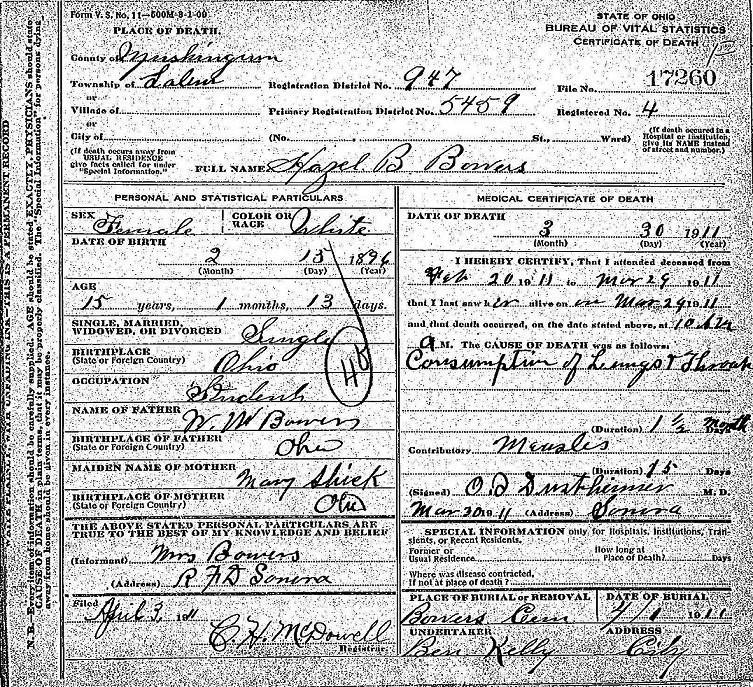 Form V. S. No. 11—600M-8-1-09
STATE OF OHIO
BUREAU OF VITAL STATISTICS
CERTIFICATE OF DEATH
PLACE OF DEATH.
County of Muskingum
Township of Salem
or
Village of
or
City of
Registration District No. 947
File No. 17260
Primary Registration District No. 5459
Registered No. 4
(No. St., Ward)
(If death occurred in a Hospital or Institution, give its NAME instead of street and number.)
(If death occurs away from USUAL RESIDENCE give facts called for under "Special Information.")
FULL NAME Hazel B Bowers
PERSONAL AND STATISTICAL PARTICULARS
SEX Female
COLOR OR RACE White
DATE OF BIRTH
2 15 1896
(Month) (Day) (Year)
AGE
15 years, 1 months, 13 days.
SINGLE, MARRIED, WIDOWED, OR DIVORCED Single
BIRTHPLACE
(State or Foreign Country) Ohio
OCCUPATION Student
NAME OF FATHER W. M Bowers
BIRTHPLACE OF FATHER
(State or Foreign Country) Ohio
MAIDEN NAME OF MOTHER Mary Shick
BIRTHPLACE OF MOTHER
(State or Foreign Country) Ohio
THE ABOVE STATED PERSONAL PARTICULARS ARE TRUE TO THE BEST OF MY KNOWLEDGE AND BELIEF
(Informant) Mrs Bowers
(Address) R F D Sonora
Filed April 3, 1911
C. H. McDowell
Registrar.
MEDICAL CERTIFICATE OF DEATH
DATE OF DEATH
3 30 1911
(Month) (Day) (Year)
I HEREBY CERTIFY, That I attended deceased from
Feb 20 1911 to Mar 29 1911
that I last saw her alive on Mar 29 1911
and that death occurred, on the date stated above, at 10
A M. The CAUSE OF DEATH was as follows:
Consumption of Lungs & Throat
(Duration) 1 ½ Month Days
Contributory Measles
(Duration) 15 Days
(Signed) O D Dustheimer M. D.
Mar 20 1911 (Address) Sonora
SPECIAL INFORMATION only for Hospitals, Institutions, Transients, or Recent Residents.
Former or Usual Residence
How long at Place of Death? Days
Where was disease contracted, if not at place of death?
PLACE OF BURIAL OR REMOVAL
Bowers Cem
DATE OF BURIAL
4/1 1911
UNDERTAKER
Ben Kelly
ADDRESS
City
N. B.—Every item of information should be carefully supplied. AGE should be stated EXACTLY. PHYSICIANS should state CAUSE OF DEATH in plain terms, that it may be properly classified. The "Special Information" for persons dying away from home should be given in every instance.
WRITE PLAINLY, WITH UNFADING INK—THIS IS A PERMANENT RECORD